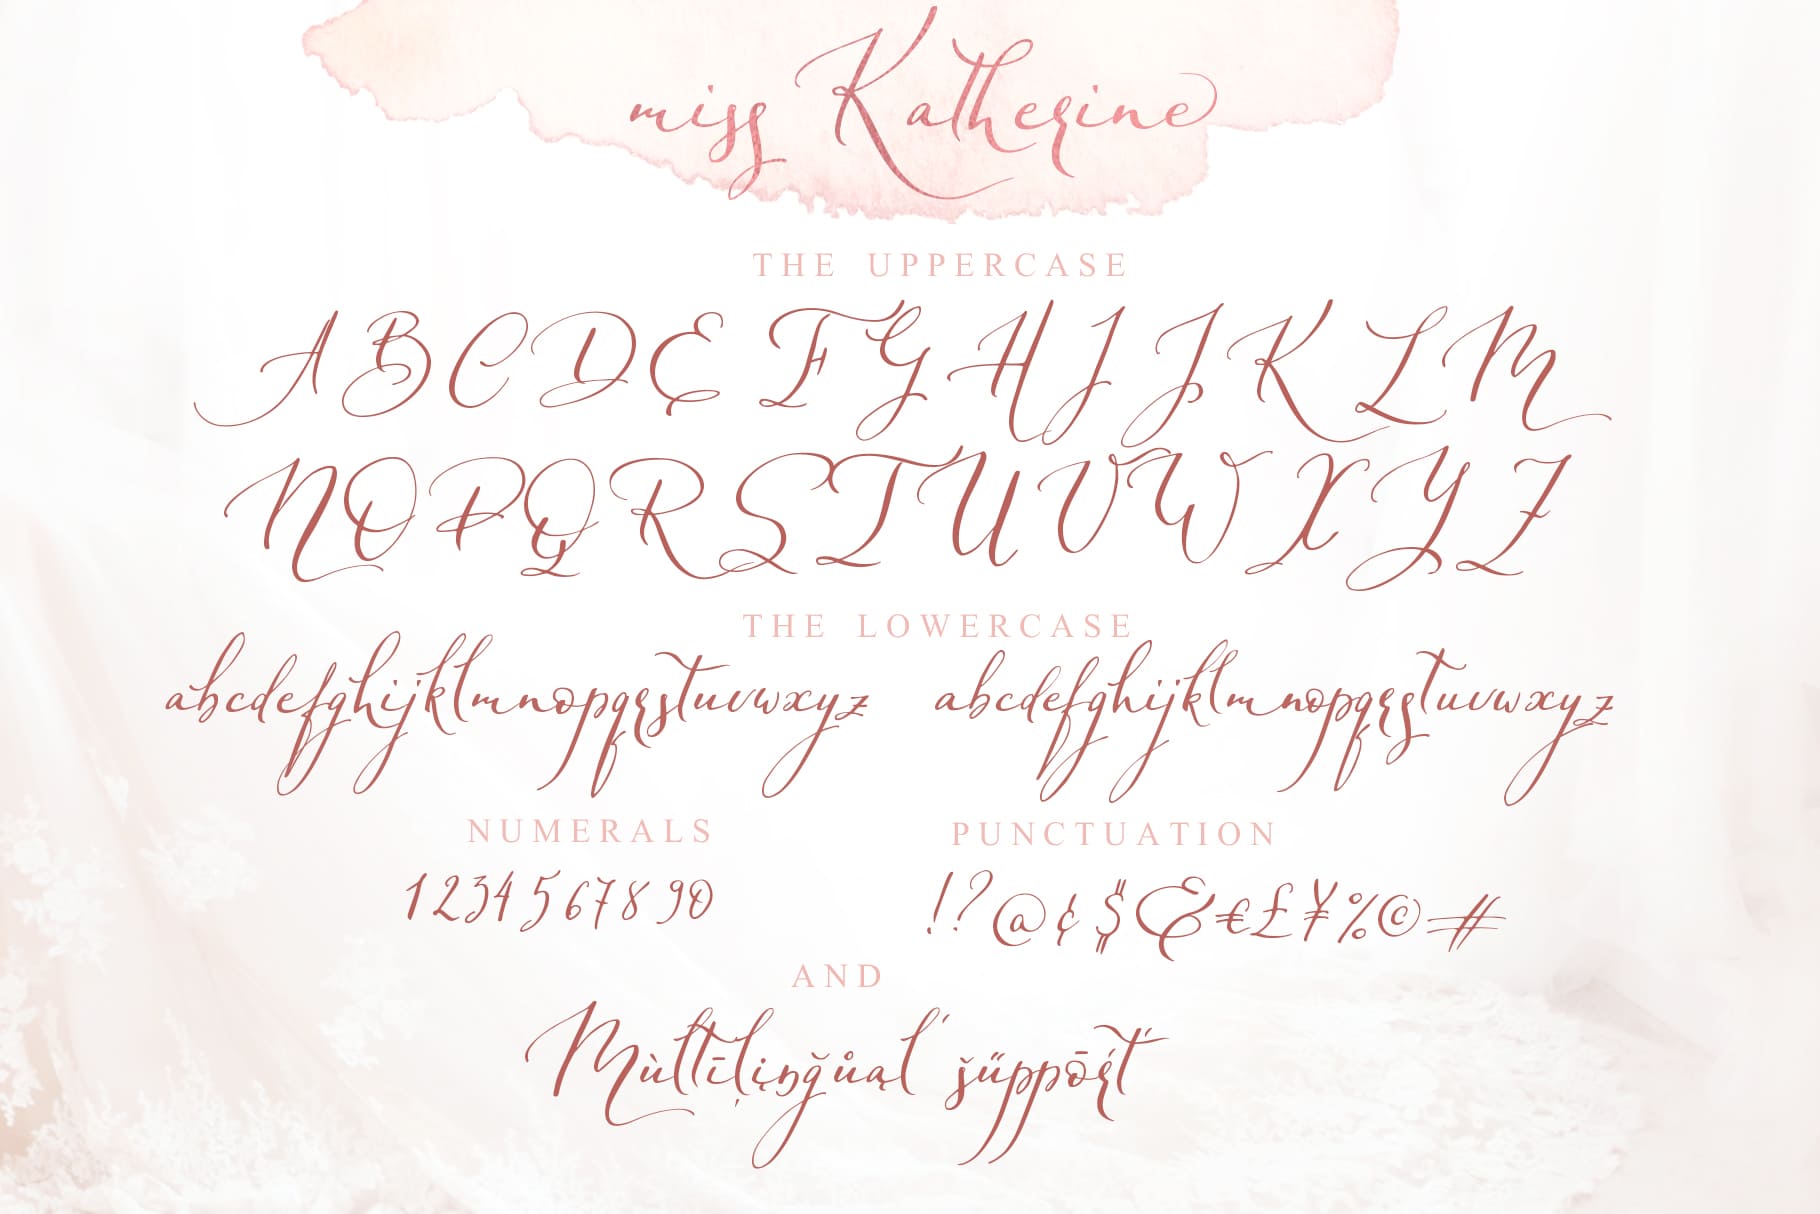 miss Katherine
THE UPPERCASE
A B C D E F G H I J K L M
N O P Q R S T U V W X Y Z
THE LOWERCASE
abcdefghijklmnopqrstuvwxyz abcdefghijklmnopqrstuvwxyz
NUMERALS PUNCTUATION
1 2 3 4 5 6 7 8 9 0 ! ? @ ¢ $ & € £ ¥ % © #
AND
Mùltīļįŋğůąĺ šűppōŕť